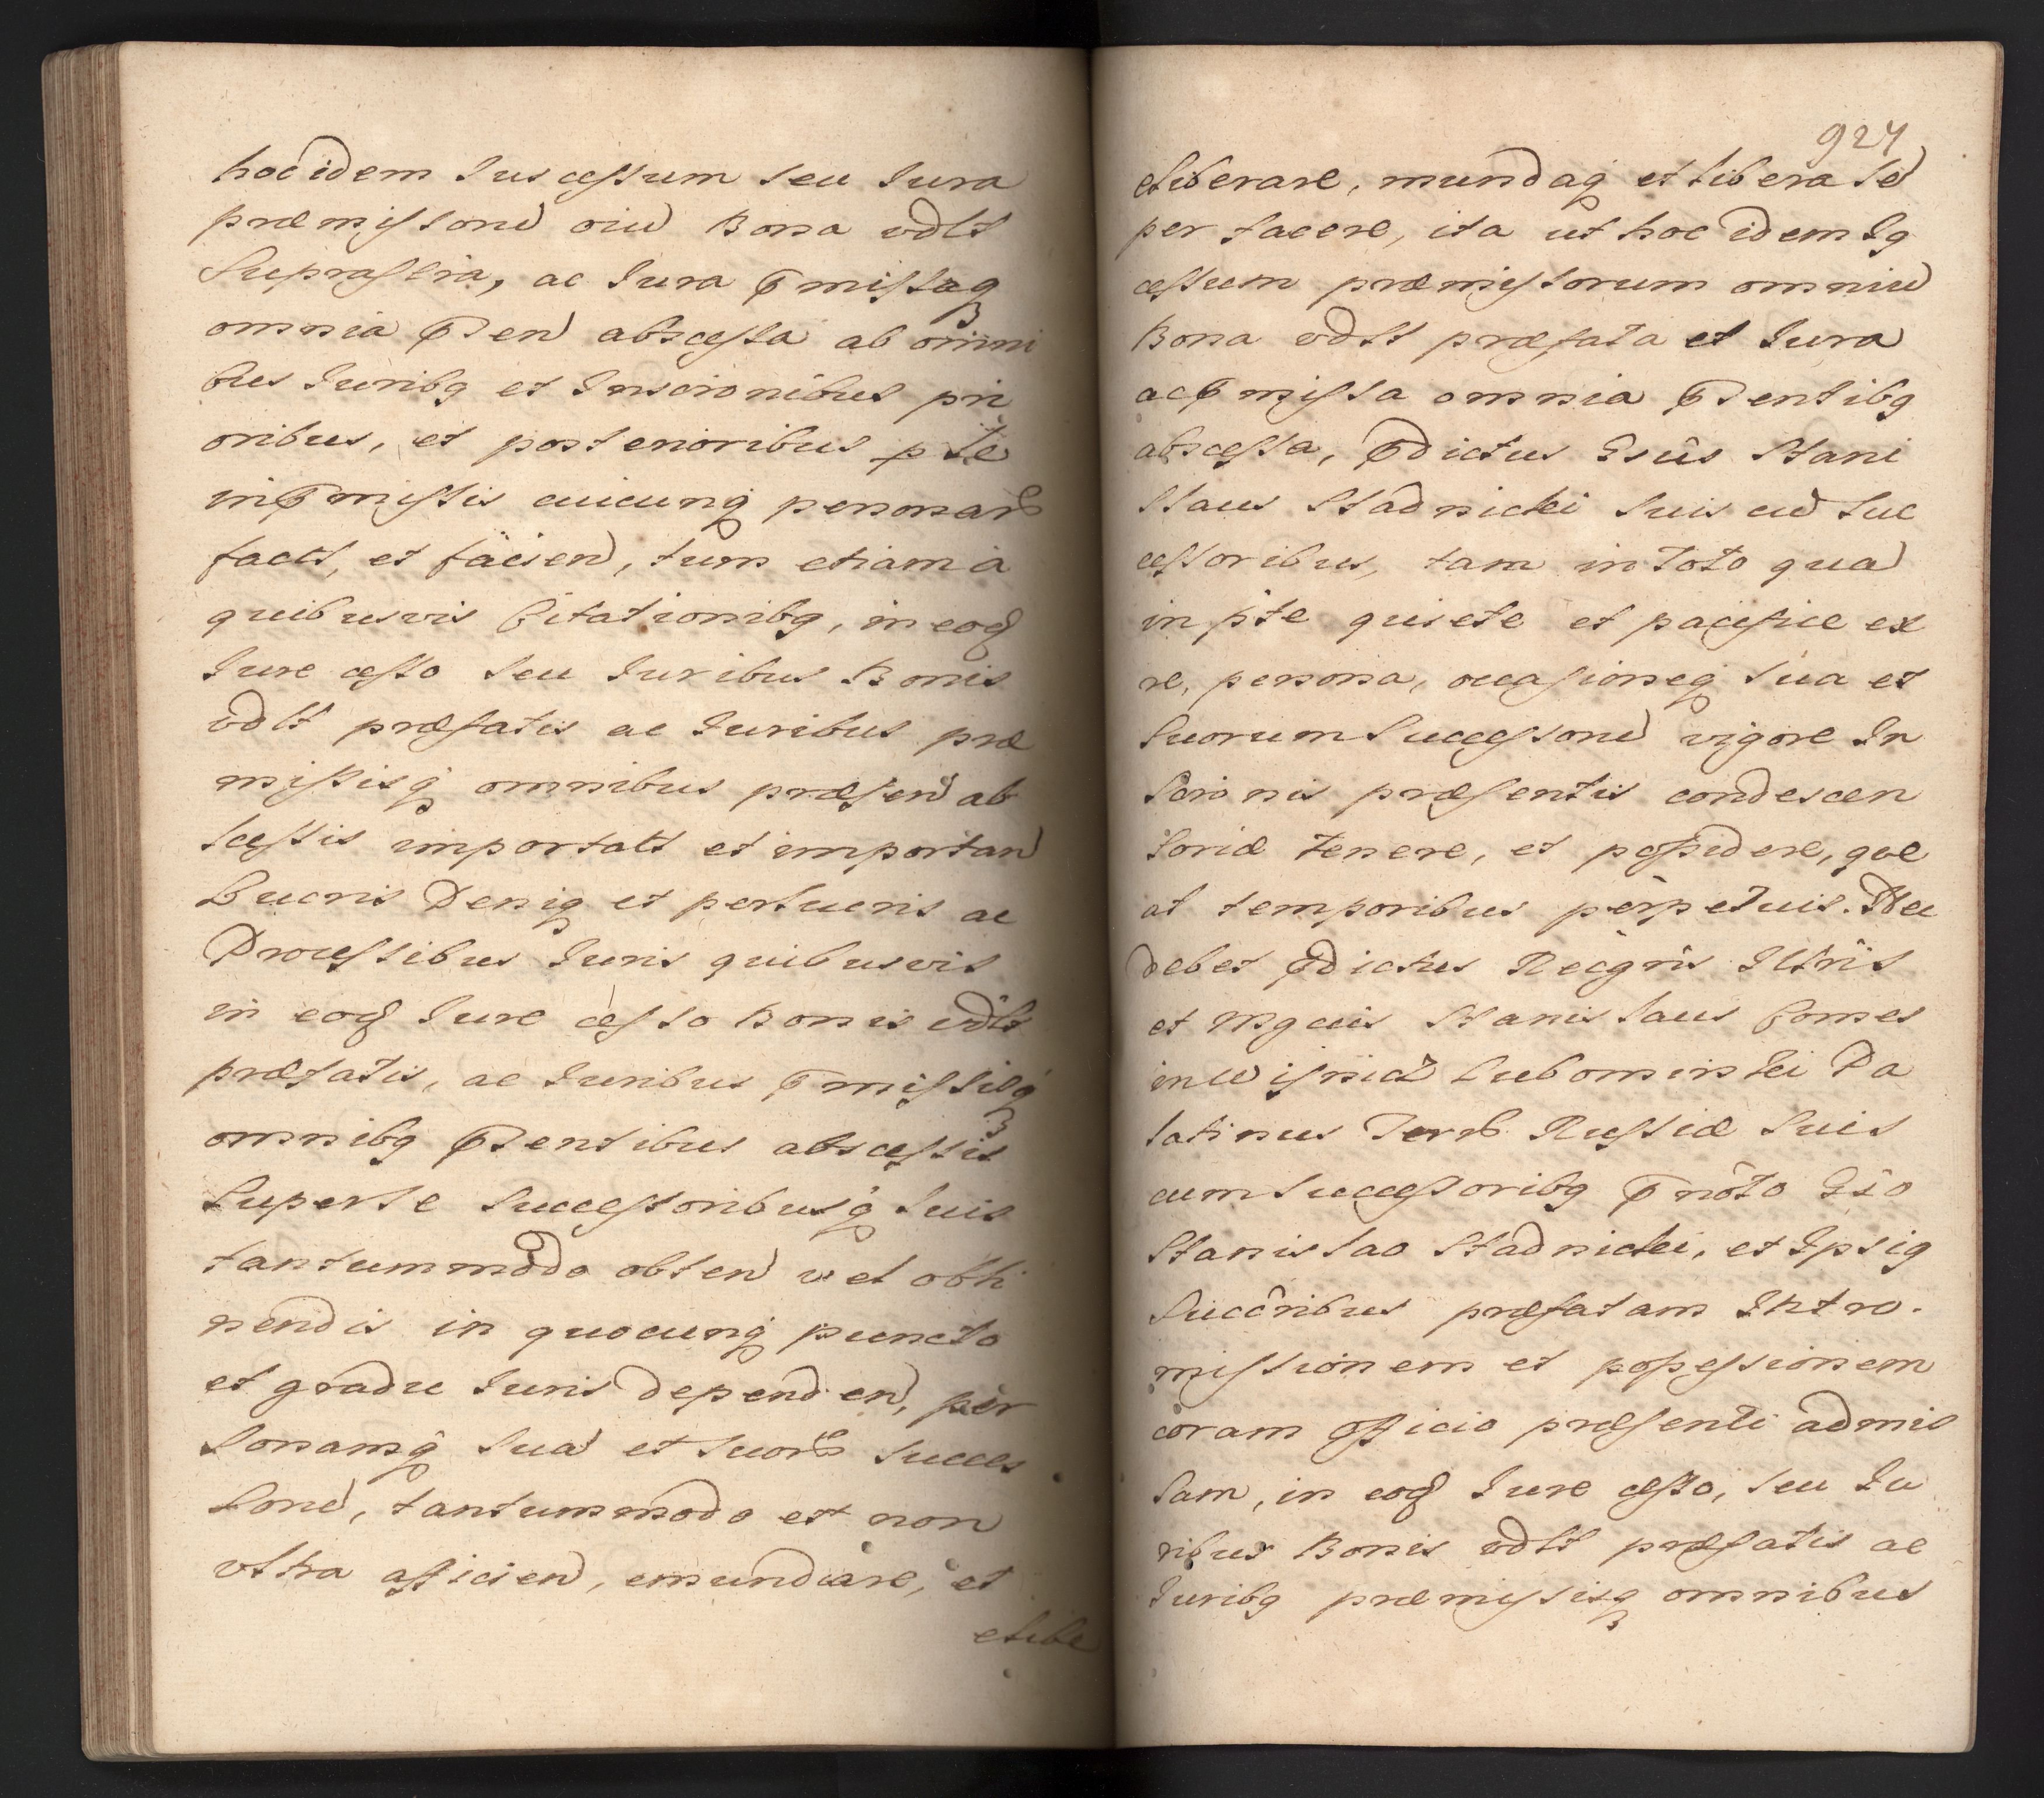 hoc idem Ius cessum seu Iura
præmissoru oiu Bona vdlt
suprascria, ac Iura pmissaq
omnia pnsen abscessa ab omni
bus Iuribq et Inscrionibus pri
oribus, et posterioribus p se
in pmissis cuicunq personarb
facts, et facien, tum etiam a
quibusvis Citationibq, in eod
Iure cesso seu Iuribus Bonis
vdlt præfatis ac Iuribus præ
missisq omnibus præsen ab
scessis importats et importan
Lucris deniq et perlucris ac
Processibus Iuris quibusvis
in eod Iure cesso Bonis vdlt
præfatis, ac Iuribus pmissisq
omnibq pnsentibus abscessis
super se Successoribusq suis
tantummodo obten vel obti
nendis in quocunq puncto
et gradu Iuris dependen, per
sonamq sua et suorb succes
soru, tantummodo et non
vltra afficien, emundare, et
elibe
924
eliberare, mundaq et libera se
per facere, ita ut hoc idem Ig
cessum præmissorum omniu
Bona vdlt præfata et Iura
ac pmissa omnia pnsentibq
abscessa, pdictus Gsus Stani
slaus Stadnicki suis cu suc
cessoribus, tam in toto qua
in pte quiete et pacifice ex
re, persona, occasioneq sua et
suorum Successoru vigore In
scrionis præsentis condescen
soriæ tenere, et possidere, que
at temporibus perpetuis. Neu
debet pdictus Recgns Illris
et Mgcus Stanislaus Comes
in Wisnicz Lubomirski Pa
latinus Terrb Russiæ suis
cum Successoribq pnoto Gso
Stanislao Stadnicki, et Ipsiq
Succribus præfatam Intro.
missionem et possessionem
coram Officio præsenti admis
sam, in eod Iure cesso, seu Iu
ribus Bonis vdlt præfatis ac
Iuribq præmissisq omnibus